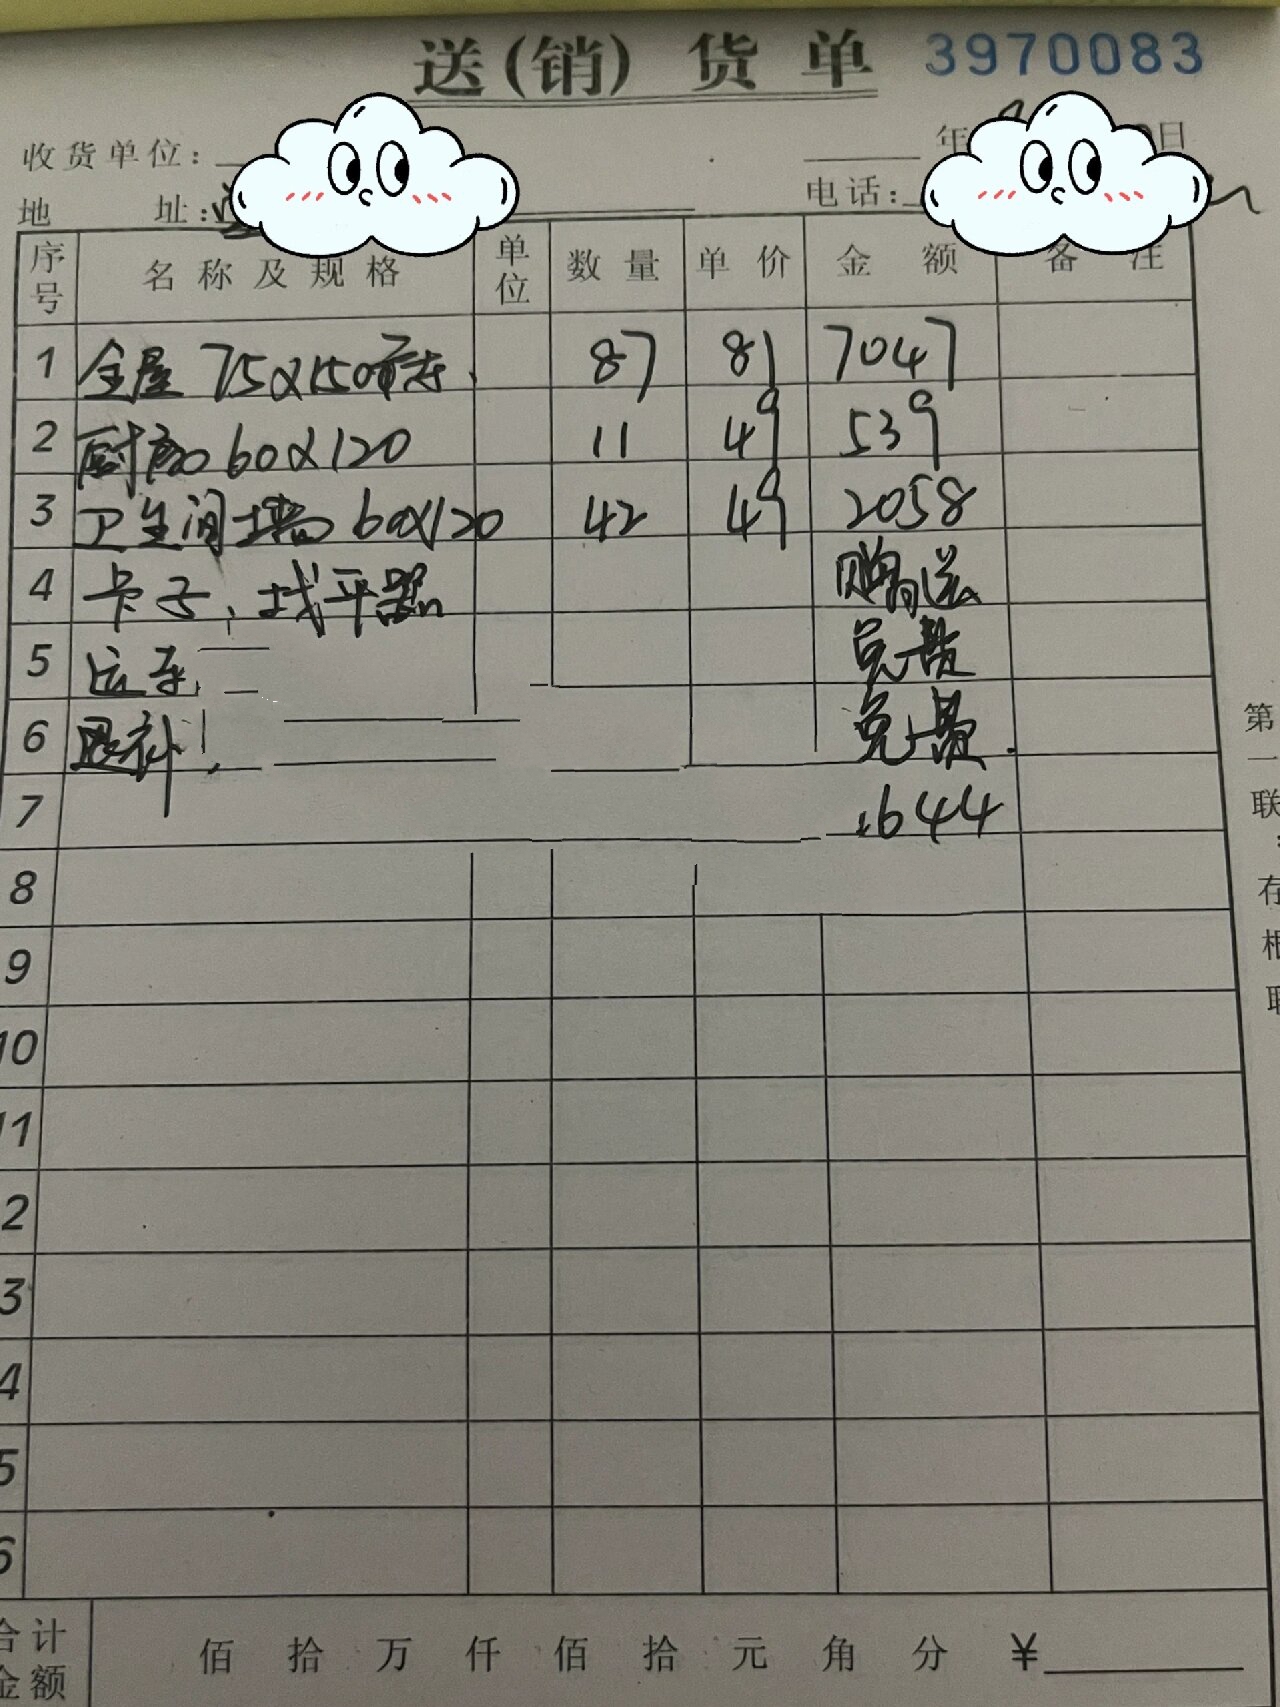 送(销)货单 3970083
收货单位: 年 日
地 址: 电话:
序号 名称及规格 单位 数量 单价 金额 备注
1 全屋 75X150 87 81 7047
2 厨房 60X120 11 49 539
3 卫生间墙 60X120 42 49 2058
4 卡子、找平器 赠送
5 运 免费
6 退补 免费
7 644
8
9
10
11
2
3
4
5
6
合计金额 佰 拾 万 仟 佰 拾 元 角 分 ¥
第一联:存根联